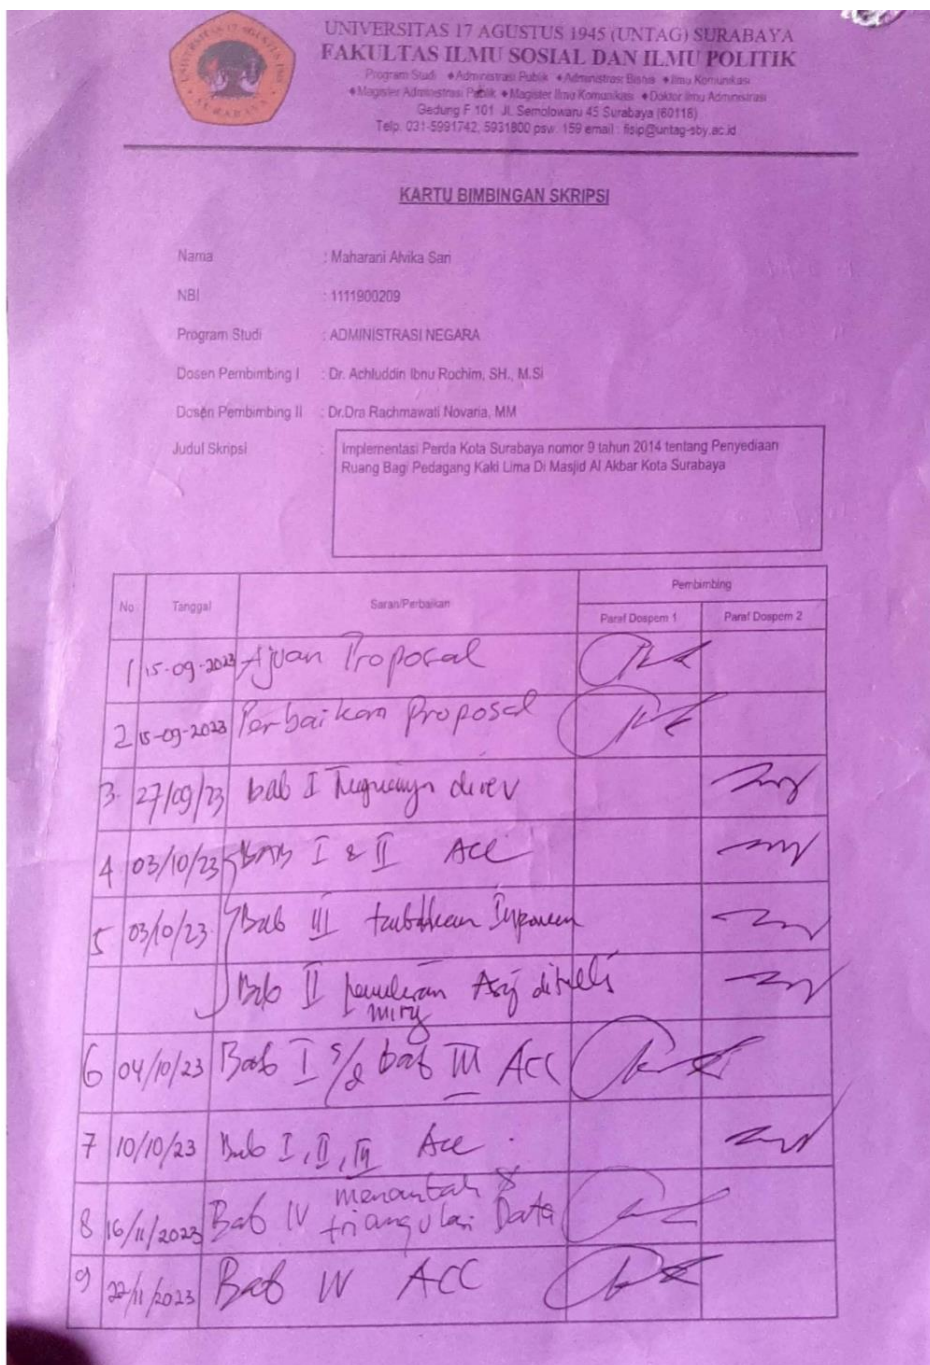 UNIVERSITAS 17 AGUSTUS 1945 (UNTAG) SURABAYA
FAKULTAS ILMU SOSIAL DAN ILMU POLITIK
Program Studi ♦Administrasi Publik ♦Administrasi Bisnis ♦Ilmu Komunikasi
♦Magister Administrasi Publik ♦Magister Ilmu Komunikasi ♦Doktor Ilmu Administrasi
Gedung F 101 Jl. Semolowaru 45 Surabaya (60118)
Telp. 031-5991742, 5931800 psw. 159 email : fisip@untag-sby.ac.id
KARTU BIMBINGAN SKRIPSI
Nama : Maharani Alvika Sari
NBI : 1111900209
Program Studi : ADMINISTRASI NEGARA
Dosen Pembimbing I : Dr. Achluddin Ibnu Rochim, SH., M.Si
Dosen Pembimbing II : Dr.Dra Rachmawati Novaria, MM
Judul Skripsi : Implementasi Perda Kota Surabaya nomor 9 tahun 2014 tentang Penyediaan
Ruang Bagi Pedagang Kaki Lima Di Masjid Al Akbar Kota Surabaya
No Tanggal Saran/Perbaikan Pembimbing
Paraf Dospem 1 Paraf Dospem 2
1 15-09-2023 Ajuan Proposal
2 15-09-2023 Perbaikan Proposal
3. 27/09/23 bab I
4 03/10/23 BAB I & II Acc
5 03/10/23 Bab III
Bab II miring
6 04/10/23 Bab I s/d bab III ACC
7 10/10/23 Bab I, II, III Acc.
8 16/11/2023 Bab IV &
triangulasi Data
9 22/11/2023 Bab IV ACC